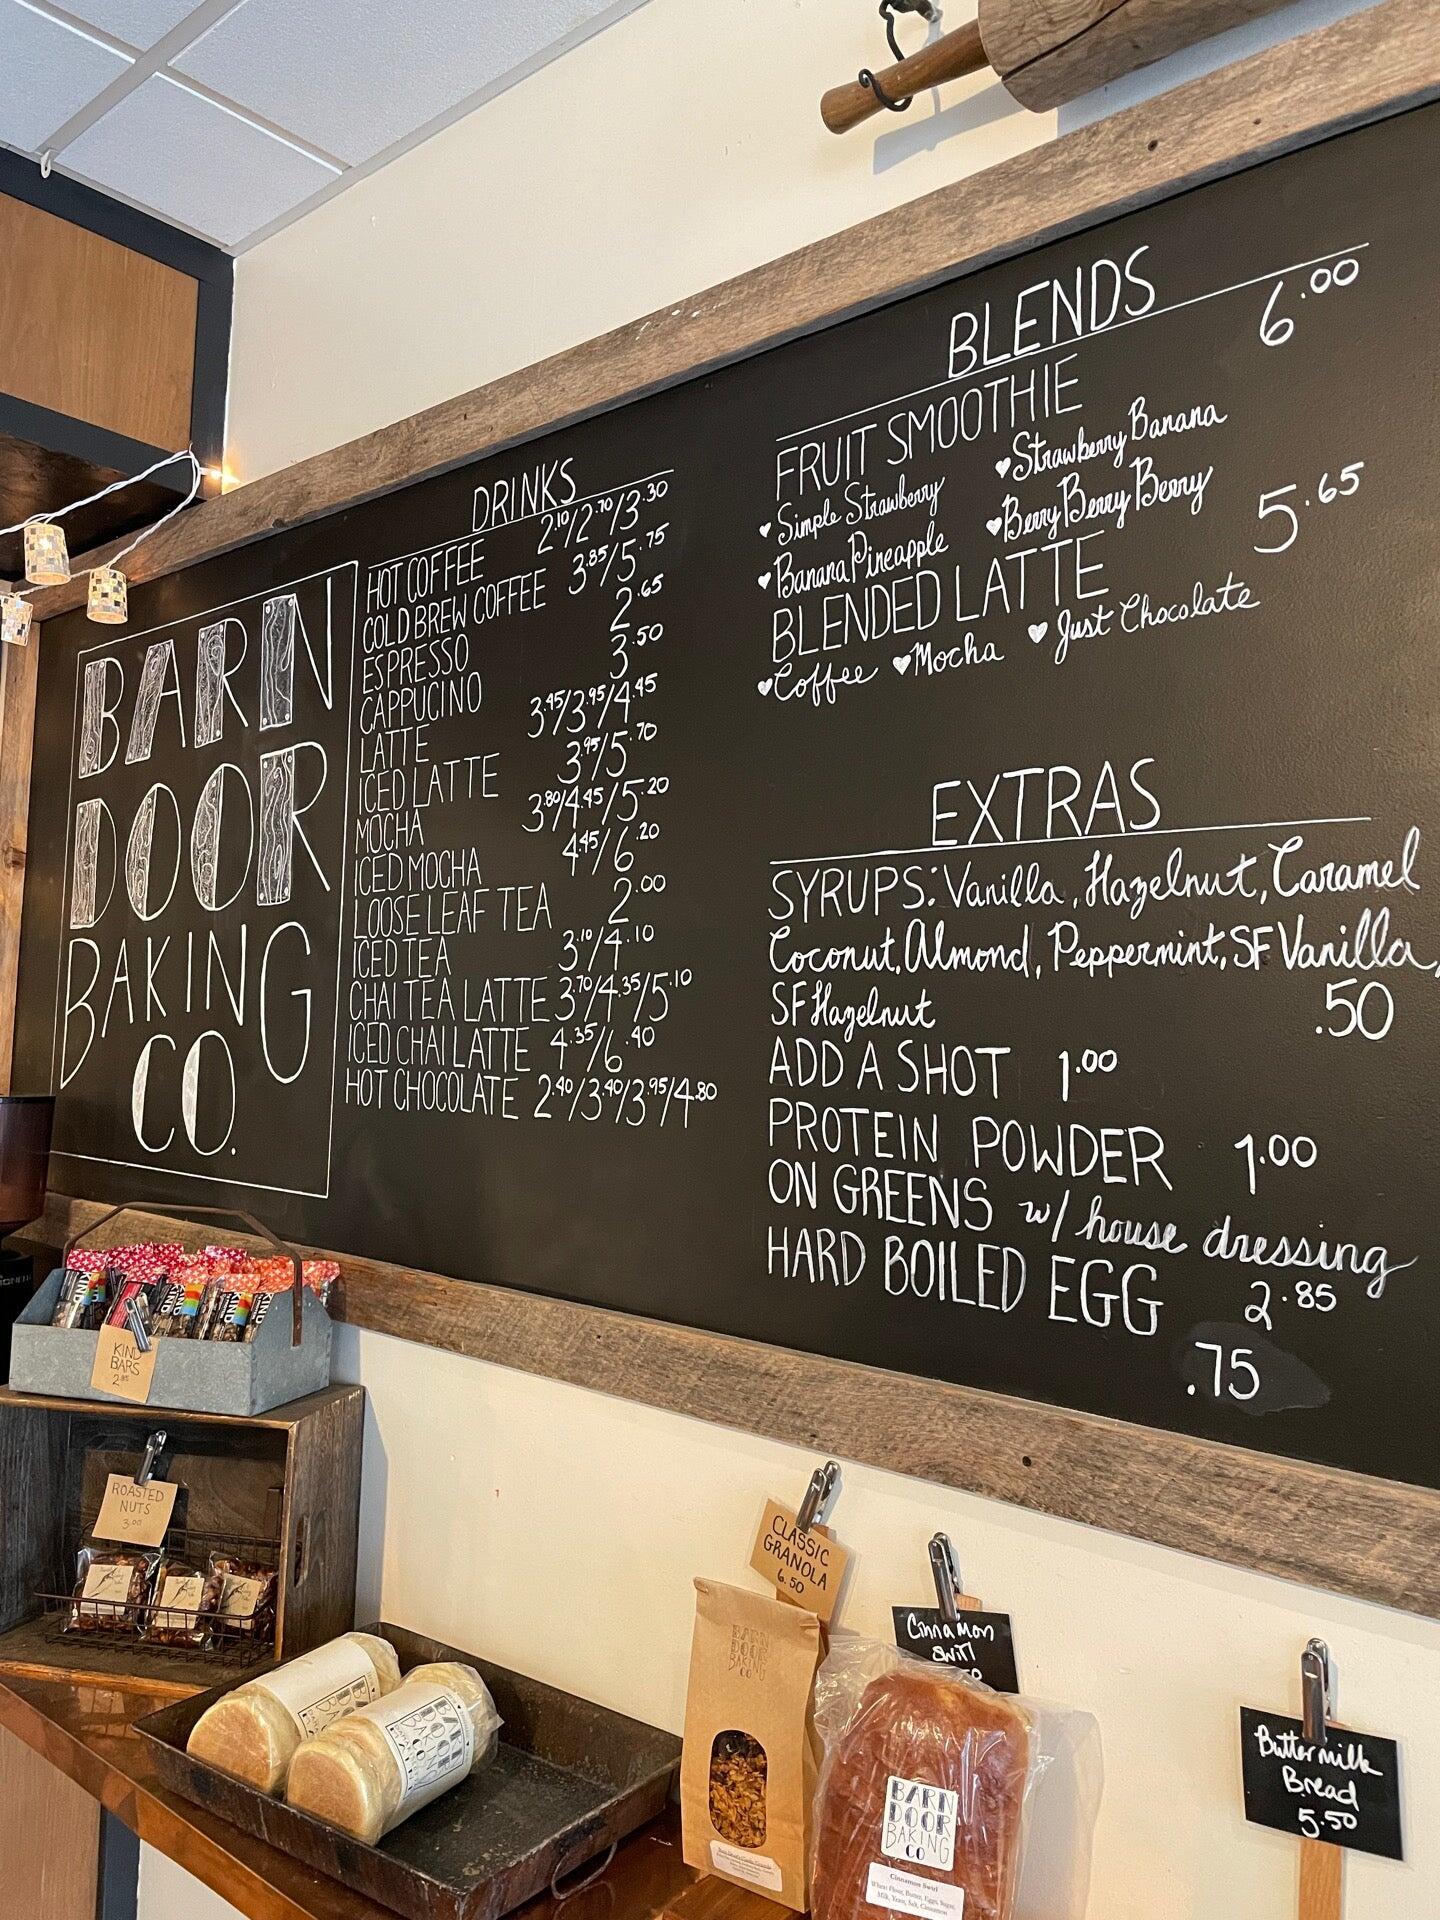 BARN
DOOR
BAKING
CO.
DRINKS
HOT COFFEE 2.10/2.70/3.30
COLD BREW COFFEE 3.85/5.75
ESPRESSO 2.65
CAPPUCINO 3.50
LATTE 3.45/3.95/4.45
ICED LATTE 3.95/5.70
MOCHA 3.80/4.45/5.20
ICED MOCHA 4.45/6.20
LOOSE LEAF TEA 2.00
ICED TEA 3.10/4.10
CHAI TEA LATTE 3.70/4.35/5.10
ICED CHAI LATTE 4.35/6.40
HOT CHOCOLATE 2.40/3.40/3.95/4.80
BLENDS
FRUIT SMOOTHIE 6.00
♥ Simple Strawberry ♥ Strawberry Banana
♥ Banana Pineapple ♥ Berry Berry Berry
BLENDED LATTE 5.65
♥ Coffee ♥ Mocha ♥ Just Chocolate
EXTRAS
SYRUPS: Vanilla, Hazelnut, Caramel
Coconut, Almond, Peppermint, SF Vanilla,
SF Hazelnut .50
ADD A SHOT 1.00
PROTEIN POWDER 1.00
ON GREENS w/ house dressing
2.85
HARD BOILED EGG
.75
KIND
KIND
KIND
KIND
KIND
BARS
2.85
ROASTED
NUTS
3.00
CLASSIC
GRANOLA
6.50
BARN
DOOR
BAKING
CO
Cinnamon
Swirl
BARN
DOOR
BAKING
CO
Cinnamon Swirl
Wheat Flour, Butter, Eggs, Sugar,
Milk, Yeast, Salt, Cinnamon
Buttermilk
Bread
5.50